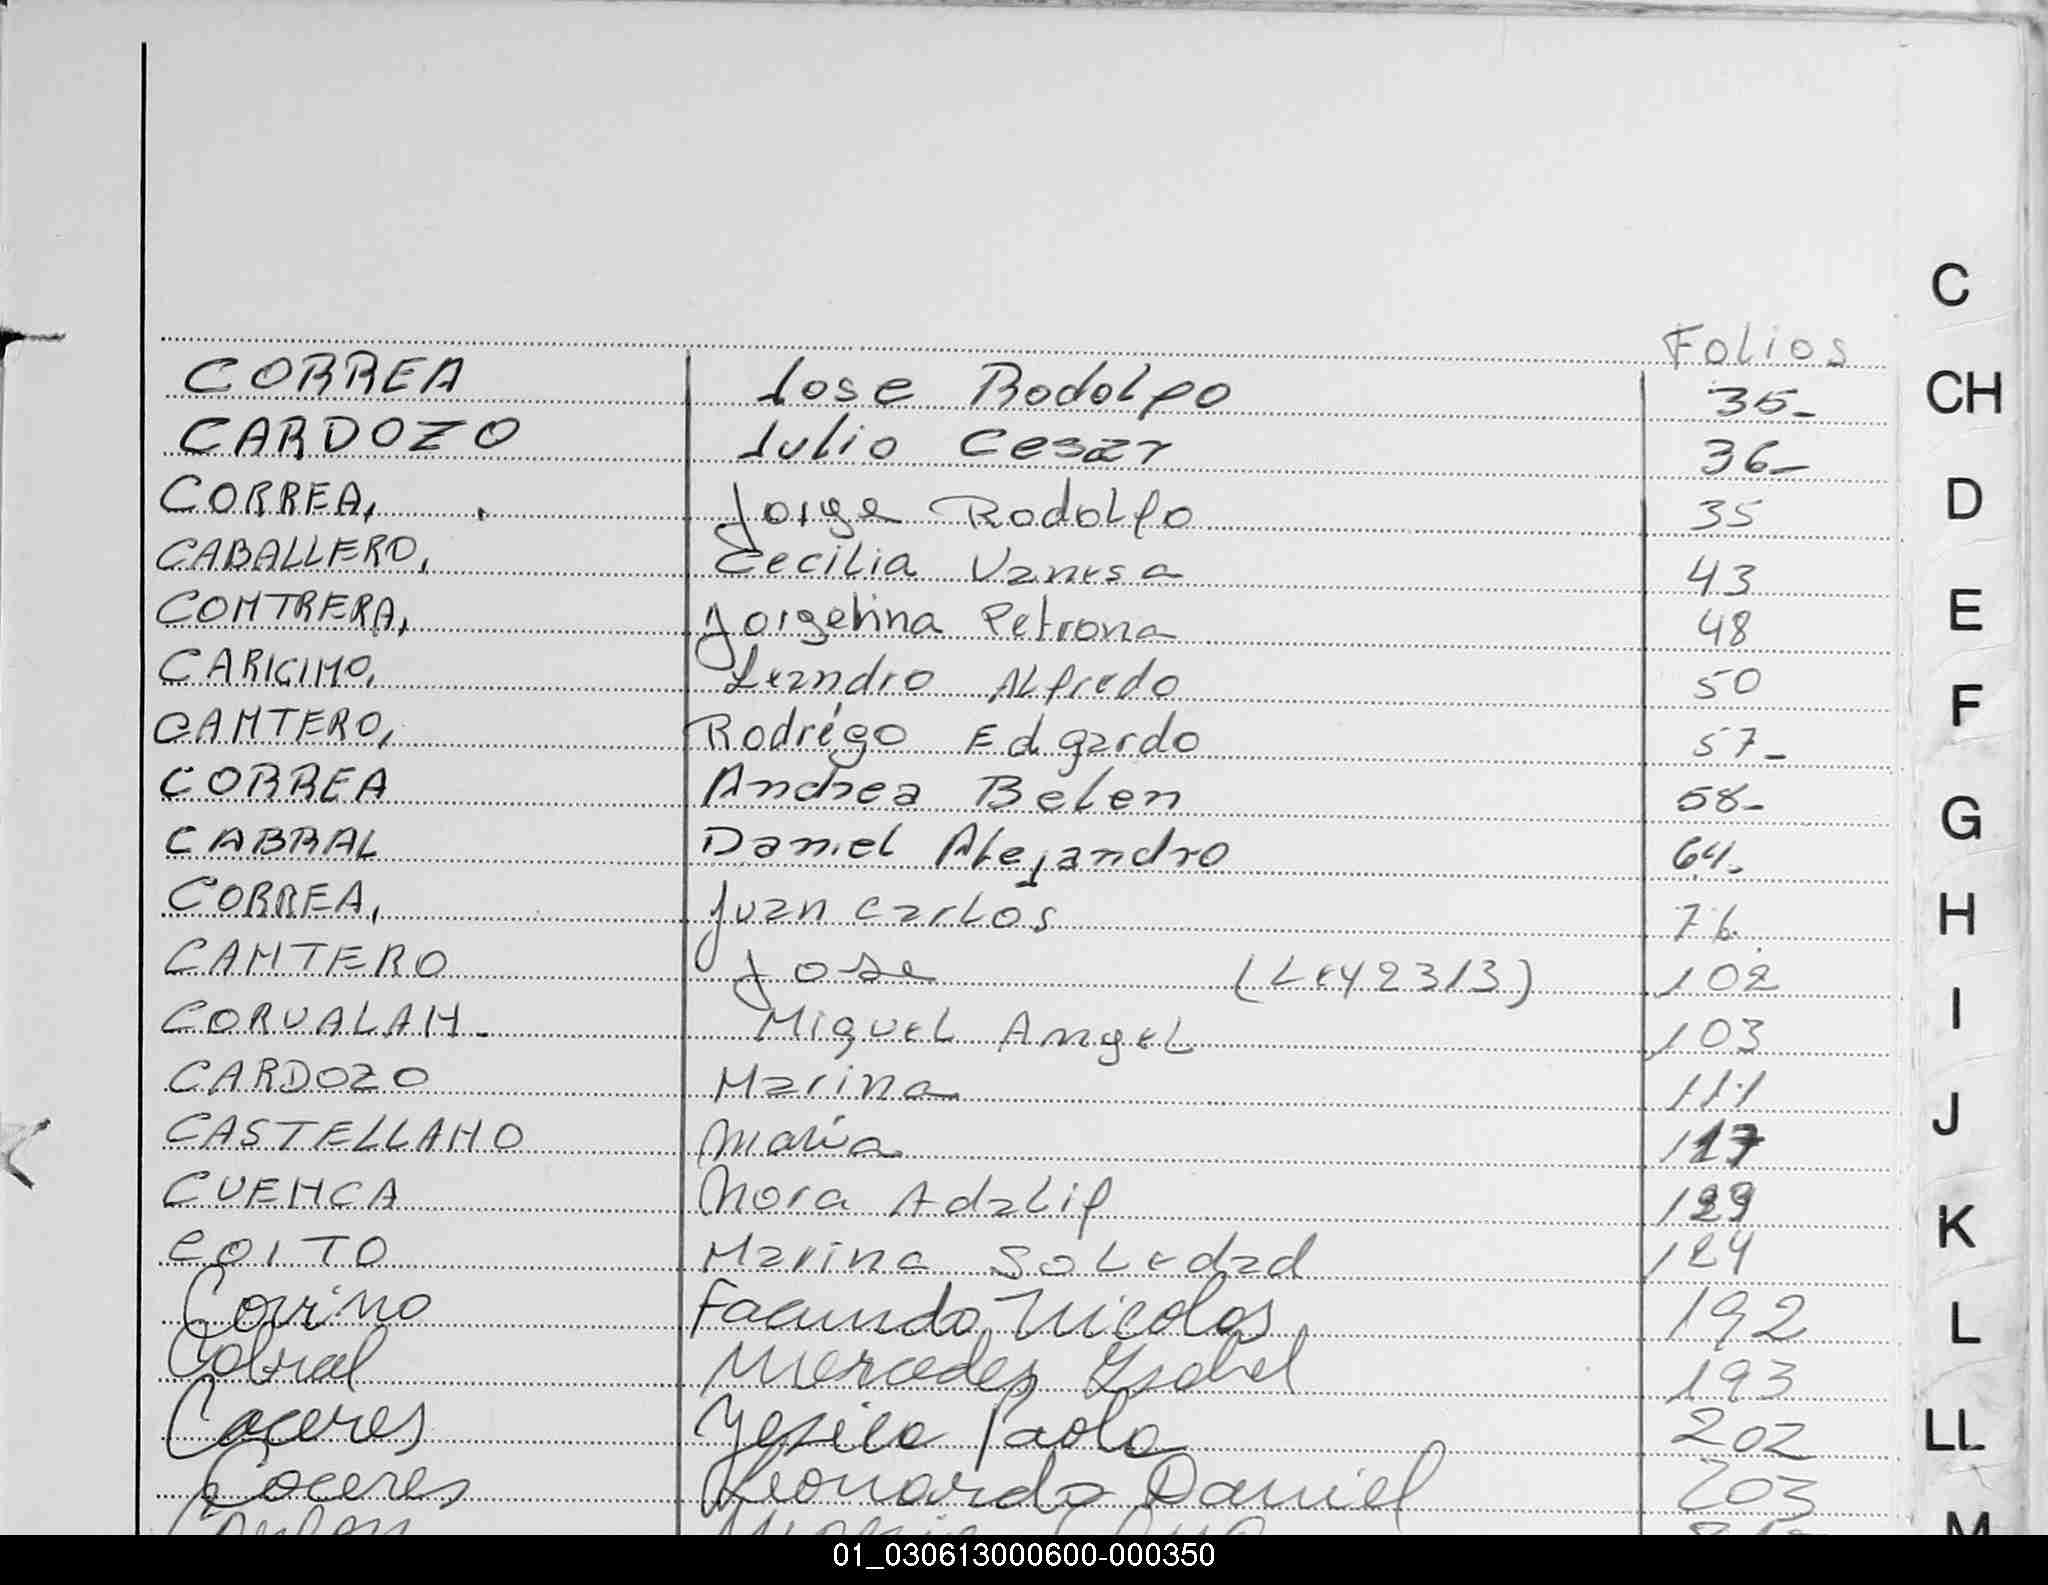 C
Folios
CORREA Jose Rodolfo 35-
CH
CARDOZO Julio Cesar 36-
CORREA, Jorge Rodolfo 35
D
CABALLERO, Cecilia Vanesa 43
CONTRERA, Jorgelina Petrona 48
E
CARICINO, Leandro Alfredo 50
F
CANTERO, Rodrigo Edgardo 57-
CORREA Andrea Belen 58-
G
CABRAL Daniel Alejandro 64.
CORREA, Juan Carlos 76.
H
CANTERO Jose (Ley 2313) 102
I
CORVALAN. Miguel Angel 103
CARDOZO Marina 111
J
CASTELLANO Maria 117
CUENCA Nora Adalif
K
COITO Marina Soledad 124
Facundo Nicolas 192
L
Cabral Mercedes Isabel 193
Caceres Yesica Paola 202
LL
Caceres Leonardo Daniel 203
M
01_030613000600-000350